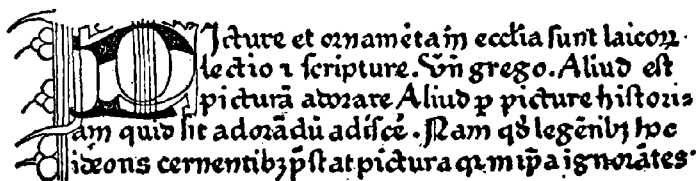 PIcture et ornamēta in ecclia sunt laicorꝝ
lectio ⁊ scripture. Vñ grego. Aliud est
picturā adorare Aliud ꝑ picture histori-
am quid sit adorādū adiscē. Nam qd̛ legētibꝫ hoc
ideotis cernentibꝫ p̄stat pictura qꝛ in ip̄a ignorātes